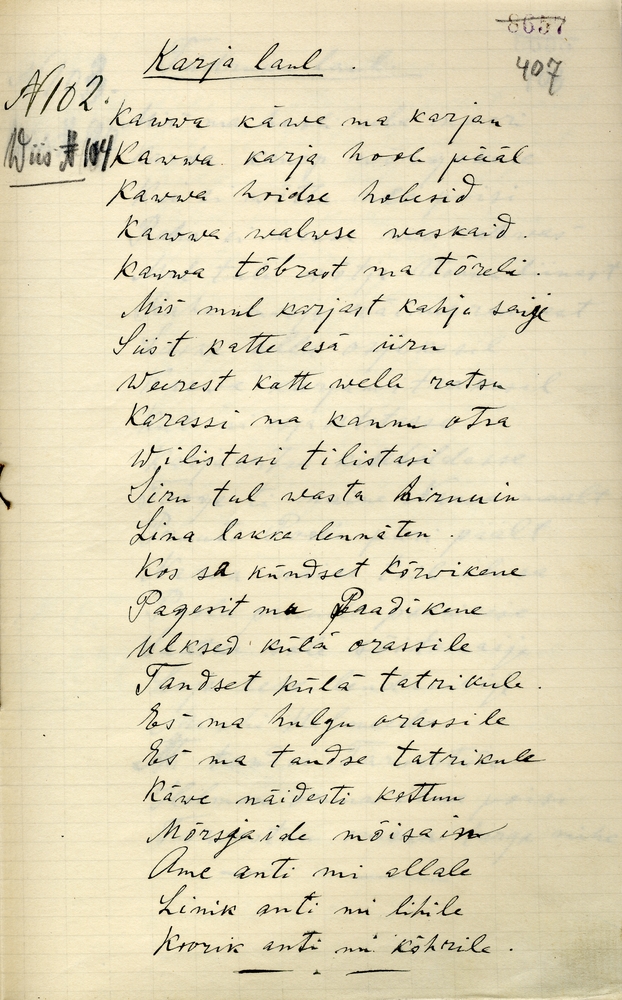 8657
407
Karja laul.
N 102.
Wiis # 104
Kawwa käwe ma karjan
Kawwa karja hoole pääl
Kawwa hoidse hobesid
Kawwa walwse waskaid.
Kawwa tõbrast ma tõreli.
Mis mul karjast kahju saije
Siist katte esä iiru
Weerest katte welle ratsu
Karassi ma kannu otsa
Wilistasi tilistasi
Siru tul wasta hirnuin
Lina lakka lennäten.
Kos sa kündset Kõrwikene
Pagesit mu Paadikene
Ulksed külä orassile
Tandset külä tatrikule.
Es ma hulgu orassile
Es ma tandse tatrikule
Käwe näidesti kottun
Mõrsjaide mõisain
Ame anti mi allale
Linik anti mi lihile
Koorik anti mi kõhrile.